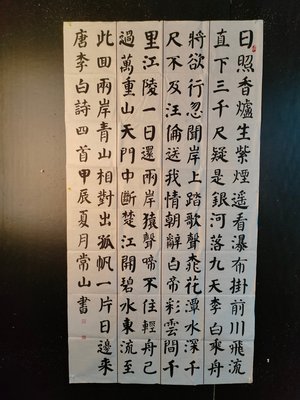 日照香爐生紫煙遥看瀑布掛前川飛流
直下三千尺疑是銀河落九天李白乘舟
將欲行忽聞岸上踏歌聲桃花潭水深千
尺不及汪倫送我情朝辭白帝彩雲間千
里江陵一日還兩岸猿聲啼不住輕舟已
過萬重山天門中斷楚江開碧水東流至
此回兩岸青山相對出孤帆一片日邊來
唐李白詩四首甲辰夏月常山書